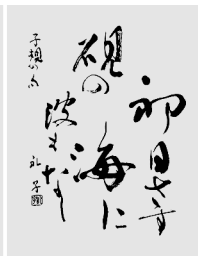 初日さす
硯の海に
波もなし
子規の句
礼子